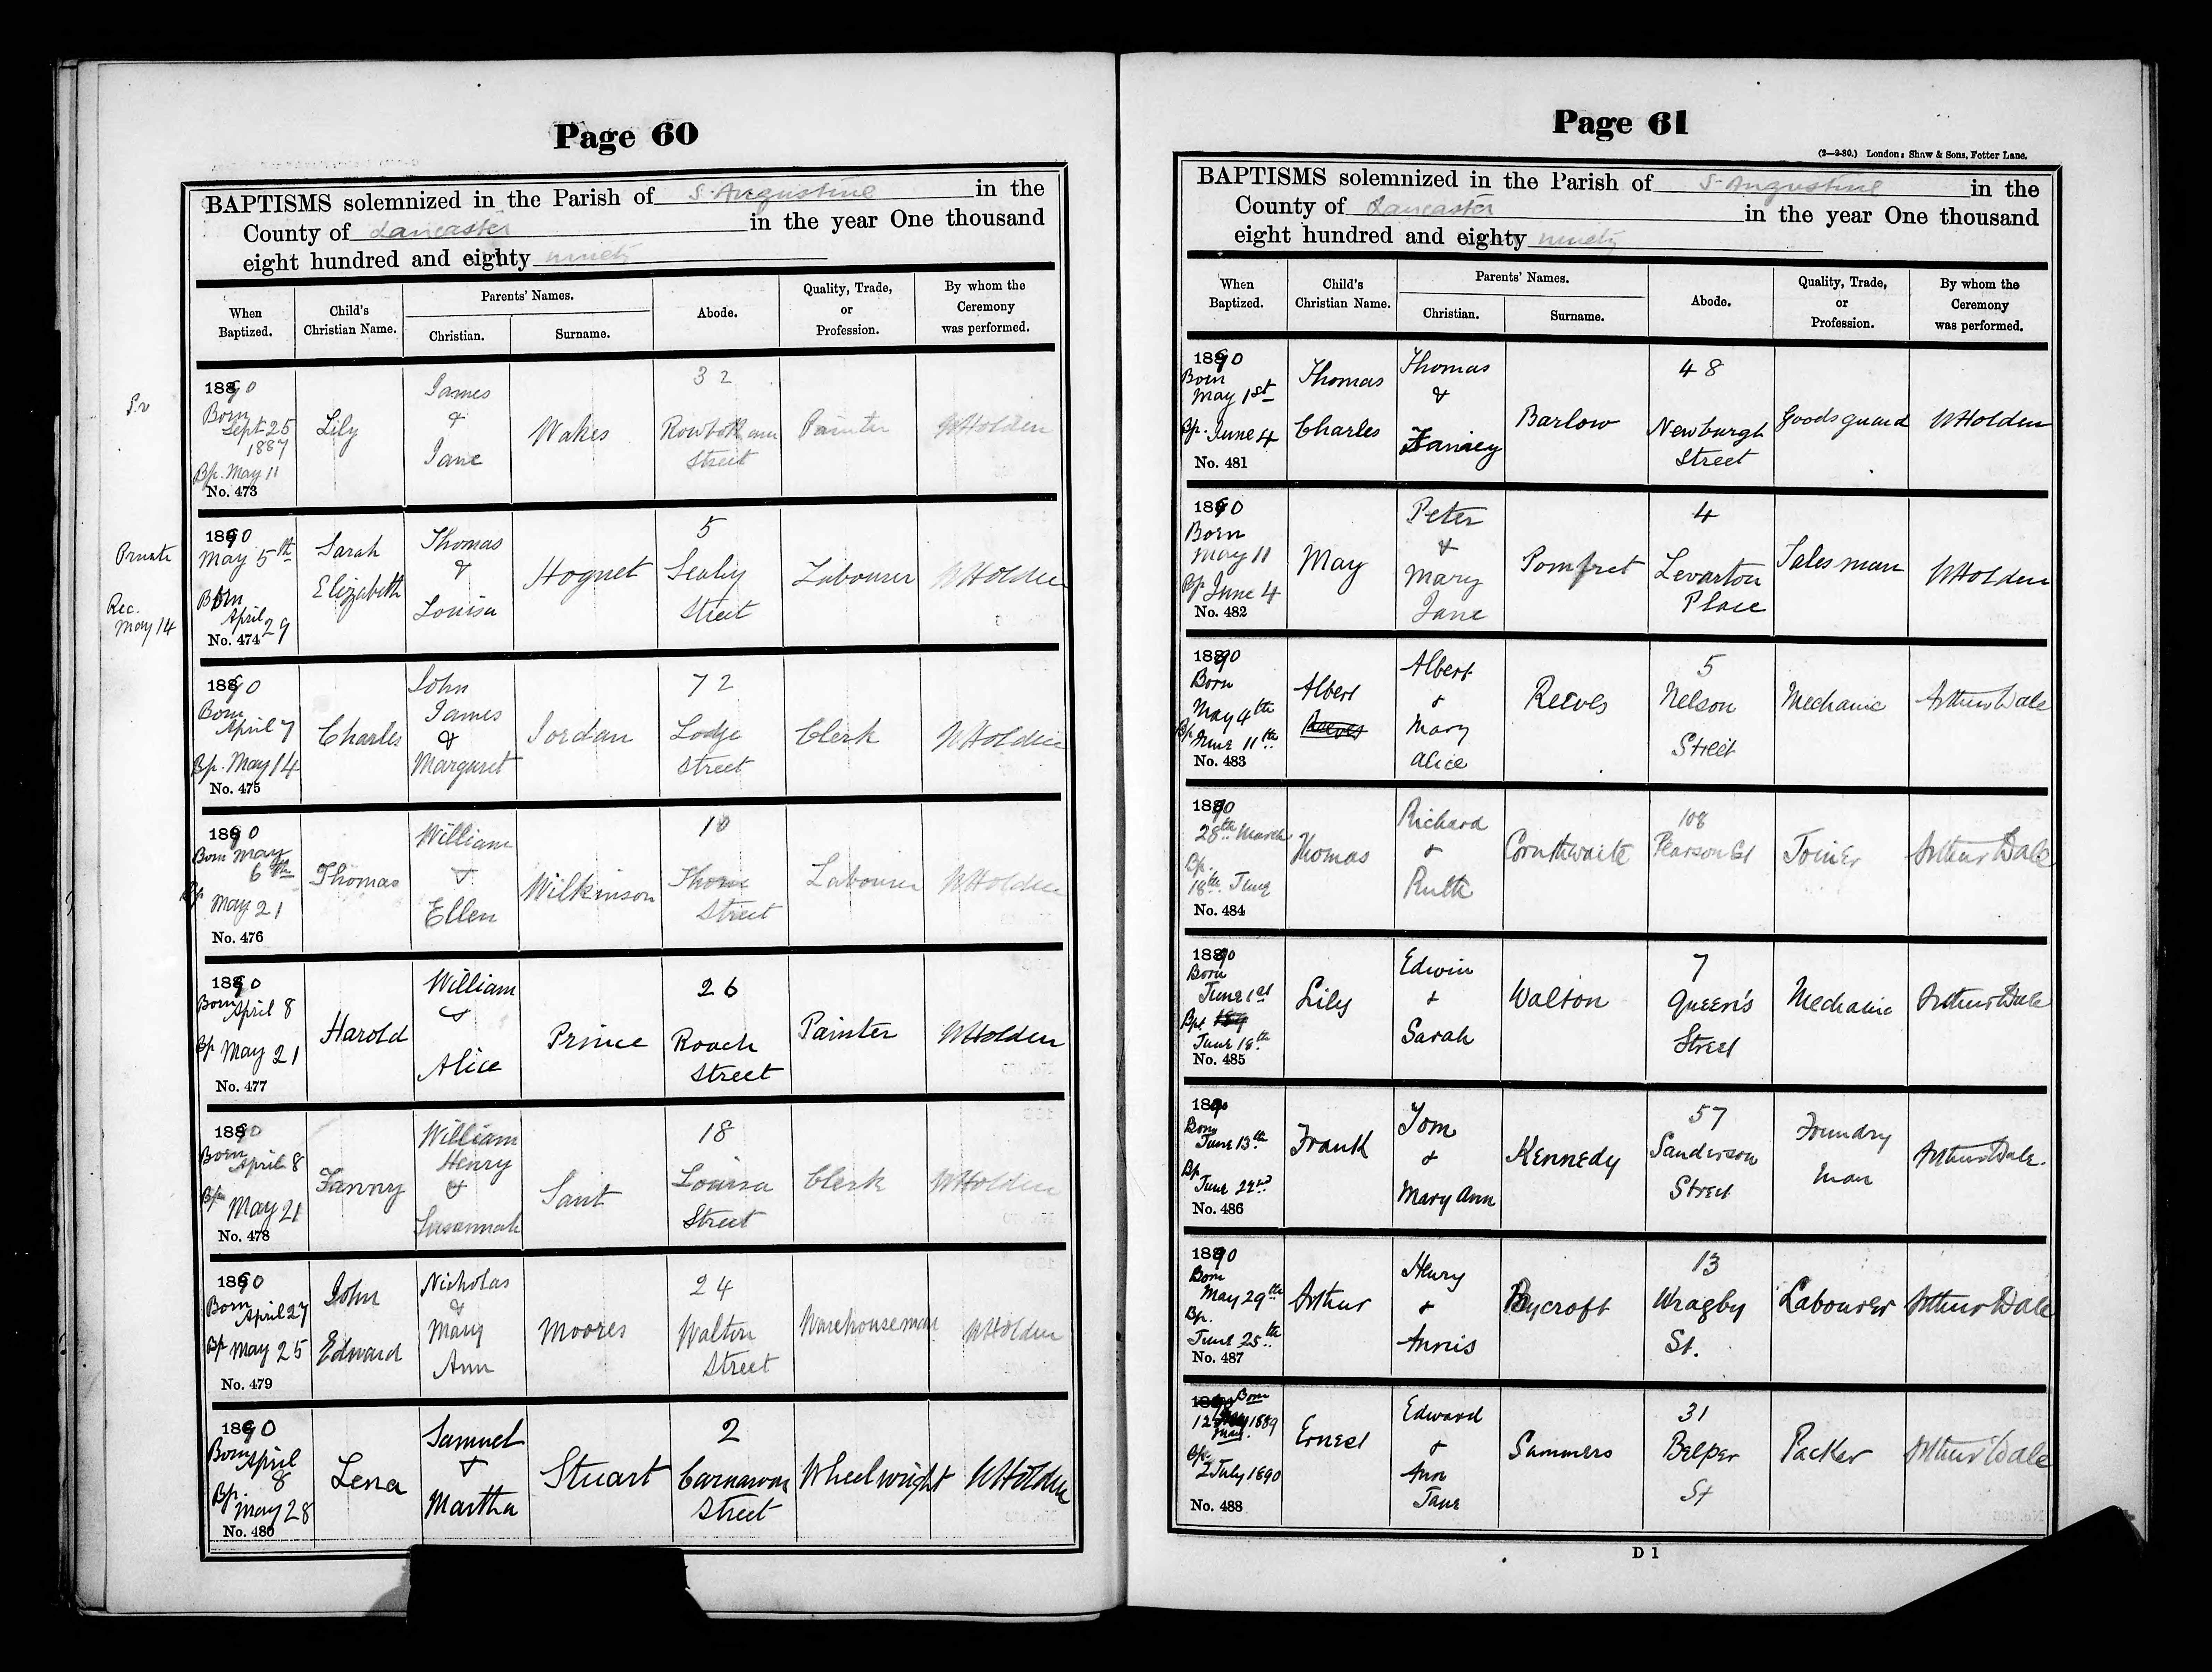 Page 60
BAPTISMS solemnized in the Parish of S. Augustine in the
County of Lancaster in the year One thousand
eight hundred and eighty ninety
When Baptized. Child's Christian Name. Parents' Names. Christian. Surname. Abode. Quality, Trade, or Profession. By whom the Ceremony was performed.
Pr
1890
Born
Sept 25
1887
Bp. May 11
No. 473
Lily
James
&
Jane
Wakes
32
Rowbotham
Street
Painter
W Holden
Private
Rec.
May 14
1890
May 5th
Born
April 29
No. 474
Sarah
Elizabeth
Thomas
&
Louisa
5
Sealey
Street
Labourer
W Holden
1890
Born
April 7
Bp. May 14
No. 475
Charles
John
James
&
Margaret
Jordan
72
Lodge
Street
Clerk
W Holden
1890
Born May
6th
Bp
May 21
No. 476
Thomas
William
&
Ellen
Wilkinson
10
Thorne
Street
Labourer
W Holden
1890
Born
April 8
Bp May 21
No. 477
Harold
William
&
Alice
Prince
26
Roach
Street
Painter
W Holden
1890
Born
April 8
Bp
May 21
No. 478
Fanny
William
Henry
&
Susannah
Sant
18
Louisa
Street
Clerk
W Holden
1890
Born
April 27
Bp May 25
No. 479
John
Edward
Nicholas
&
Mary
Ann
Moores
24
Walton
Street
Warehouseman
W Holden
1890
Born April
8
Bp.
May 28
No. 480
Lena
Samuel
&
Martha
Stuart
2
Carnarvon
Street
Wheelwright
W Holden
Page 61
(2—9-80.) London: Shaw & Sons, Fetter Lane.
BAPTISMS solemnized in the Parish of S. Augustine in the
County of Lancaster in the year One thousand
eight hundred and eighty ninety
When Baptized. Child's Christian Name. Parents' Names. Christian. Surname. Abode. Quality, Trade, or Profession. By whom the Ceremony was performed.
1890
Born
May 1st
Bp. June 4
No. 481
Thomas
Charles
Thomas
&
Barlow
48
Newburgh
Street
Goods guard
W Holden
1890
Born
May 11
Bp June 4
No. 482
May
Peter
&
Mary
Jane
Pomfret
4
Levarton
Place
Salesman
W Holden
1890
Born
May 4th
Bp
June 11th
No. 483
Albert
Reeves
Albert
&
Mary
Alice
Reeves
5
Nelson
Street
Mechanic
Arthur Dale
1890
28th March
Bp.
18th June
No. 484
Thomas
Richard
&
Ruth
Cornthwaite
108
Pearson St
Joiner
Arthur Dale
1890
Born
June 1st
Bpt
June 18th
No. 485
Lily
Edwin
&
Sarah
Walton
7
Queen's
Street
Mechanic
Arthur Dale
1890
Born
June 13th
Bp
June 22nd
No. 486
Frank
Tom
&
Mary Ann
Kennedy
57
Sanderson
Street
Foundry
man
Arthur Dale.
1890
Born
May 29th
Bp.
June 25th
No. 487
Arthur
Henry
&
Annis
Rycroft
13
Wragby
St.
Labourer
Arthur Dale
Born
12
May
1889
Bp.
2 July 1890
No. 488
Ernest
Edward
&
Ann
Jane
Summers
31
Belper
St
Packer
Arthur Dale
D 1